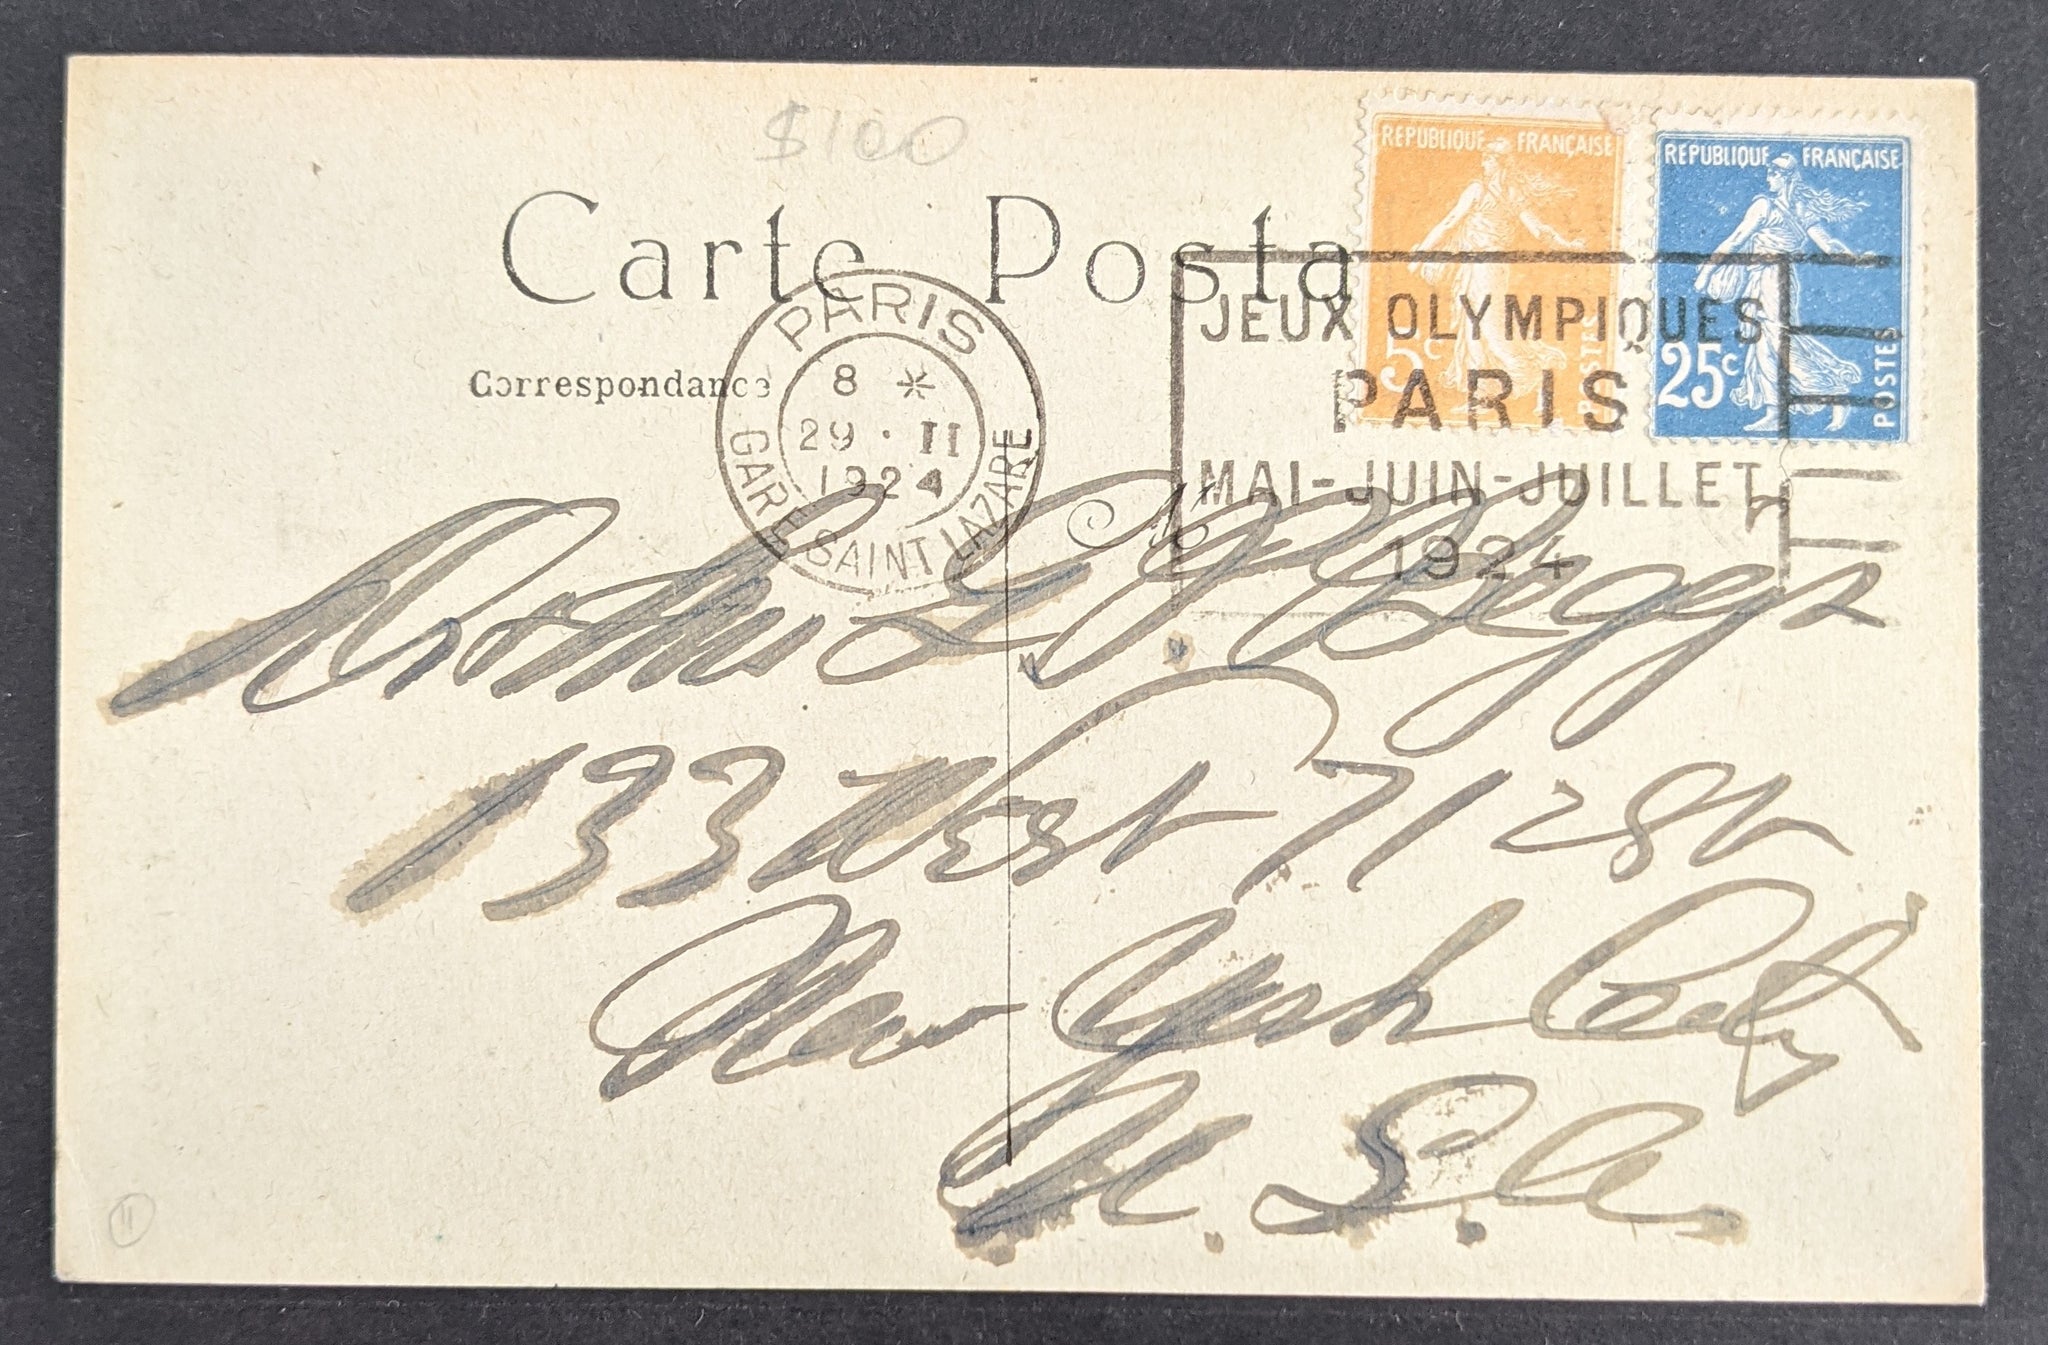 $100
REPUBLIQUE FRANÇAISE
5c
POSTES
REPUBLIQUE FRANÇAISE
25c
POSTES
Carte Posta
Correspondance
PARIS
8 *
29 · II
1924
GARE SAINT LAZARE
JEUX OLYMPIQUES
PARIS
MAI-JUIN-JUILLET
1924
M
133 West 71 st
New York City
U. S. A.
11